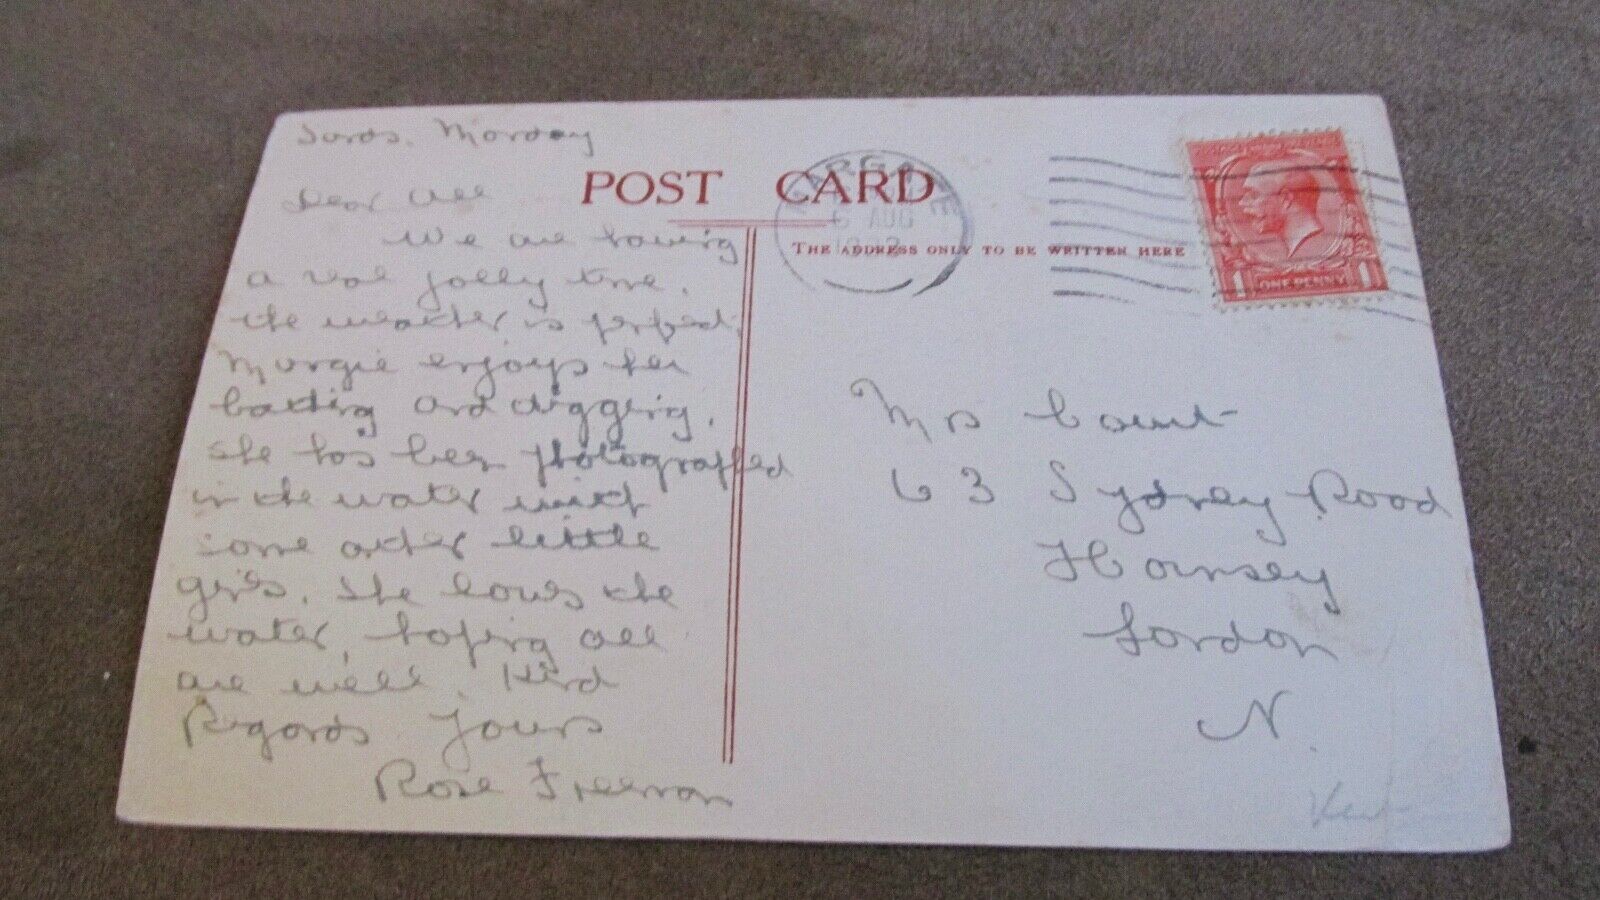 Sands. Monday
Dear All
We are having
a real jolly time,
the weather is perfect,
Margie enjoys her
bathing and digging,
she has been photographed
in the water with
some other little
girls. She loves the
water, hoping all
are well. Kind
Regards Yours
Rose Freeman
POST CARD
MARGATE
6 AUG
THE ADDRESS ONLY TO BE WRITTEN HERE
1 ONE PENNY 1
Mrs Count
63 Sydney Road
Hornsey
London
N.